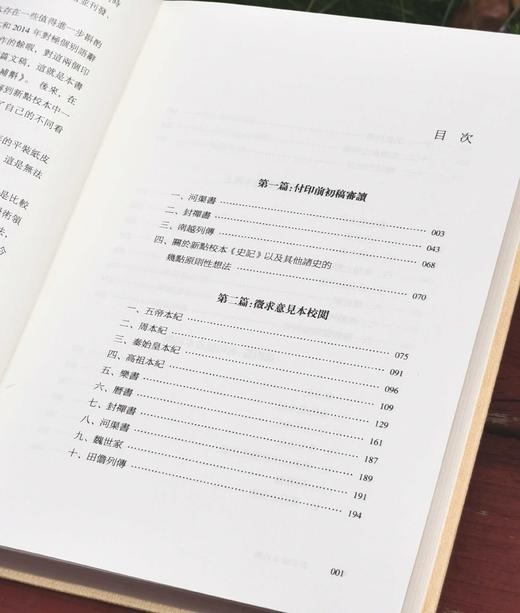 並刊發、
存在一些值得進一步斟酌
和 2014 年對極個別語辭
作的餘暇，對這兩個印
篇文稿，這就是本書
補斠》。 後來，在
到新點校本中一
了自己的不同看
的平裝紙皮
這是無法
是比較
術領
法，
今
目 次
第一篇：付印前初稿審讀
一、河渠書 ………… 003
二、封禪書 ………… 043
三、南越列傳 ………… 068
四、關於新點校本《史記》以及其他諸史的
幾點原則性想法 ………… 070
第二篇：徵求意見本校閱
一、五帝本紀 ………… 075
二、周本紀 ………… 091
三、秦始皇本紀 ………… 096
四、高祖本紀 ………… 109
五、樂書 ………… 129
六、曆書 ………… 161
七、封禪書 ………… 187
八、河渠書 ………… 189
九、魏世家 ………… 191
十、田儋列傳 ………… 194
001